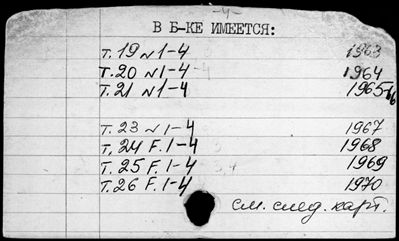 -4-
В Б-КЕ ИМЕЕТСЯ:
Т. 19 N 1-4 1963
Т. 20 N 1-4 1964
Т. 21 N 1-4 1965-66
Т. 23 N 1-4 1967
Т. 24 F. 1-4 1968
Т. 25 F. 1-4 1969
Т. 26 F. 1-4 1970
см. след. карт.